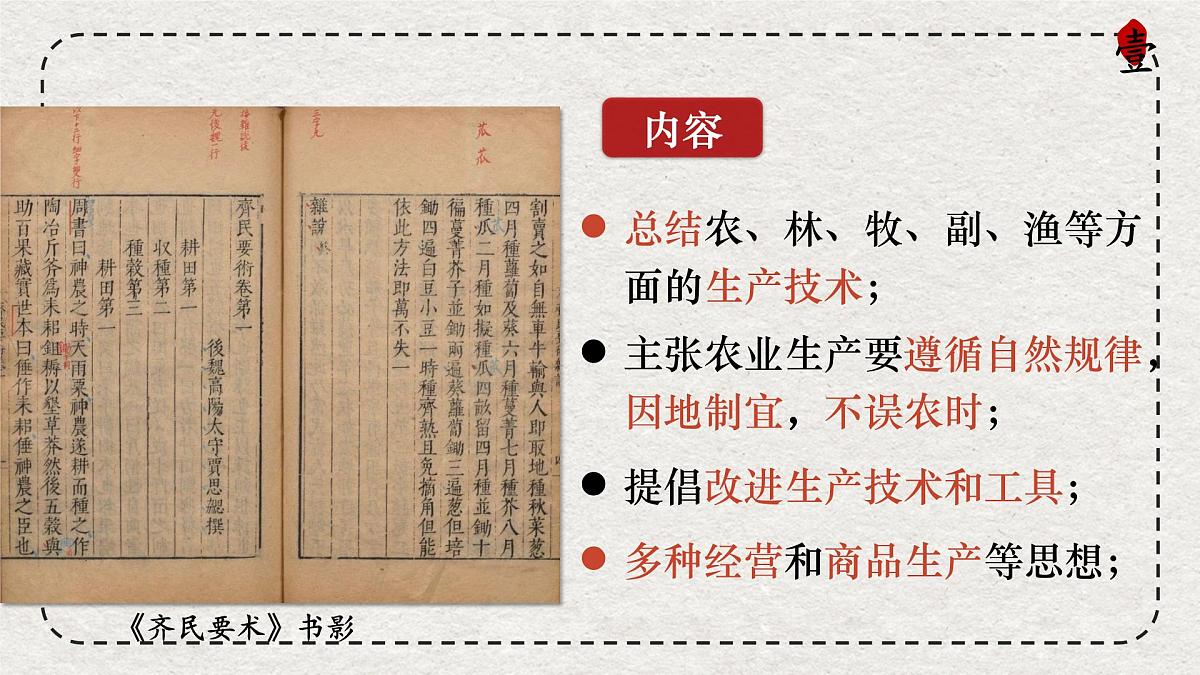 壹
内容
总结农、林、牧、副、渔等方
面的生产技术；
主张农业生产要遵循自然规律，
因地制宜，不误农时；
提倡改进生产技术和工具；
多种经营和商品生产等思想；
割賣之如自無車牛輸與人即取地種秋菜葱
四月種蘿蔔及葵六月種蔓菁七月種芥八月
種瓜二月種如擬種瓜四畝留四月種並鋤十
徧蔓菁芥子並鋤兩遍葵蘿蔔鋤三遍葱但培
鋤四遍白豆小豆一時種齊熟且免摘角但能
依此方法即萬不失一
雜說
齊民要術卷第一
後魏高陽太守賈思勰撰
耕田第一
收種第二
種穀第三
耕田第一
周書曰神農之時天雨粟神農遂耕而種之作
陶冶斤斧爲耒耜鉏耨以墾草莽然後五穀與
助百果藏實世本曰倕作耒耜倕神農之臣也
瓜 瓜
《齐民要术》书影